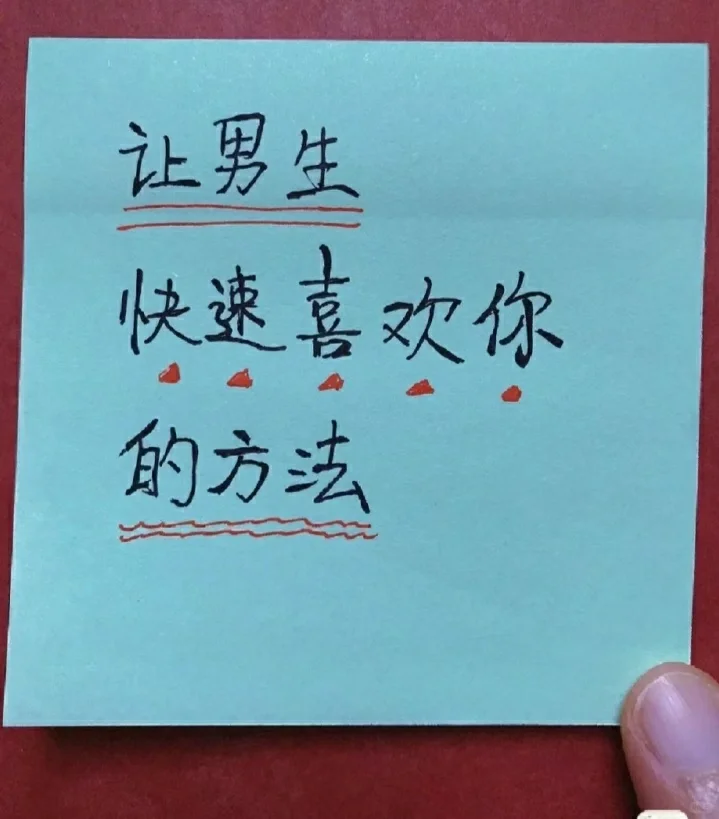 让男生
快速喜欢你
的方法